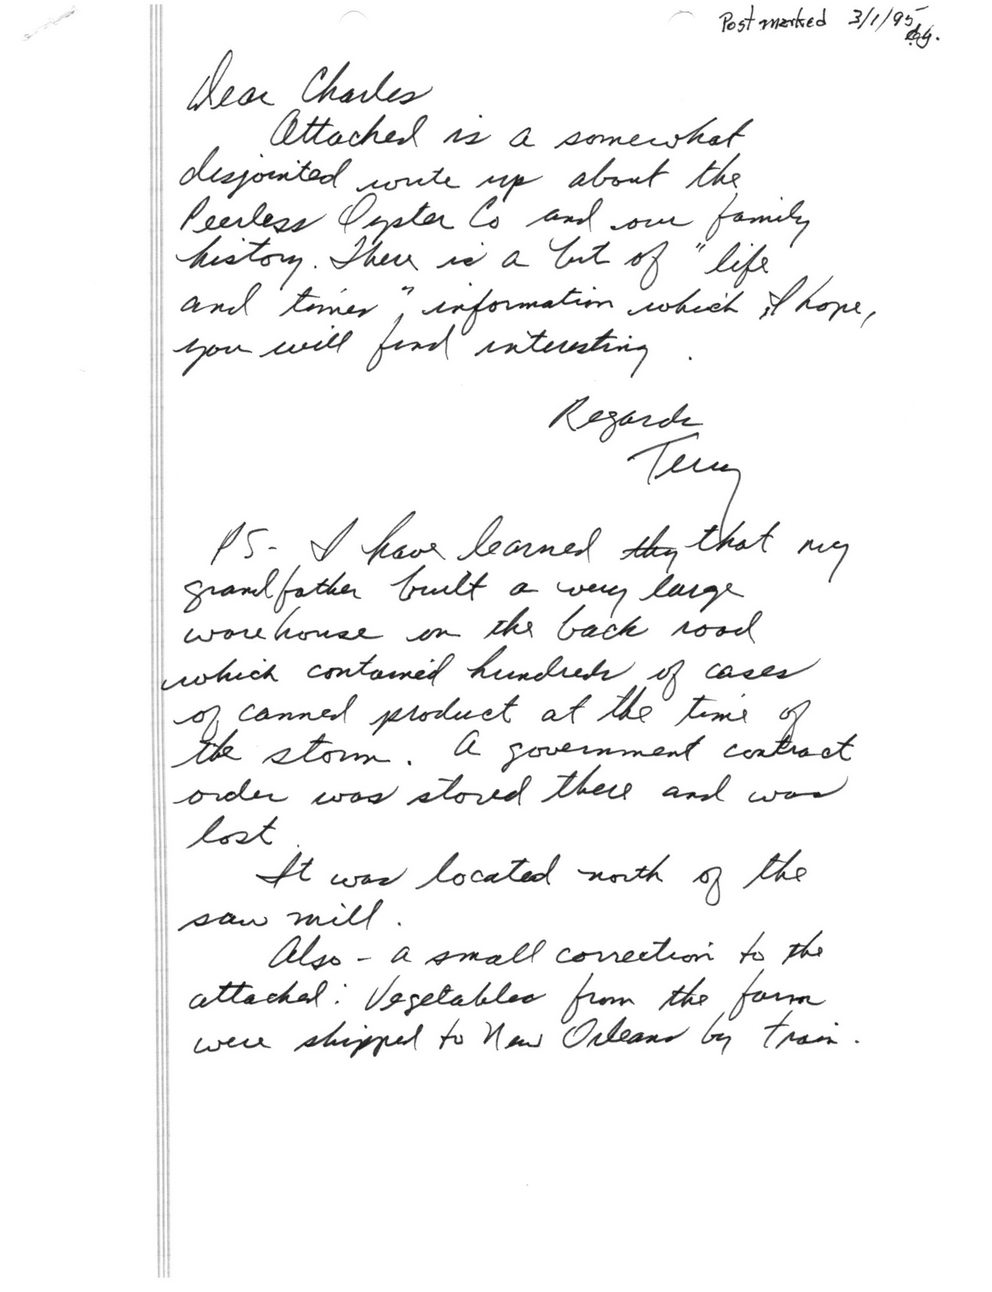 Post marked 3/1/95
Dear Charles
Attached is a somewhat
disjointed write up about the
Peerless Oyster Co and our family
history. There is a bit of "life
and times", information which I hope,
you will find interesting.
Regards
Terry
PS- I have learned thy that my
grandfather built a very large
warehouse on the back road
which contained hundreds of cases
of canned product at the time of
the storm. A government contract
order was stored there and was
lost.
It was located north of the
saw mill.
Also - a small correction to the
attached: Vegetables from the farm
were shipped to New Orleans by train.